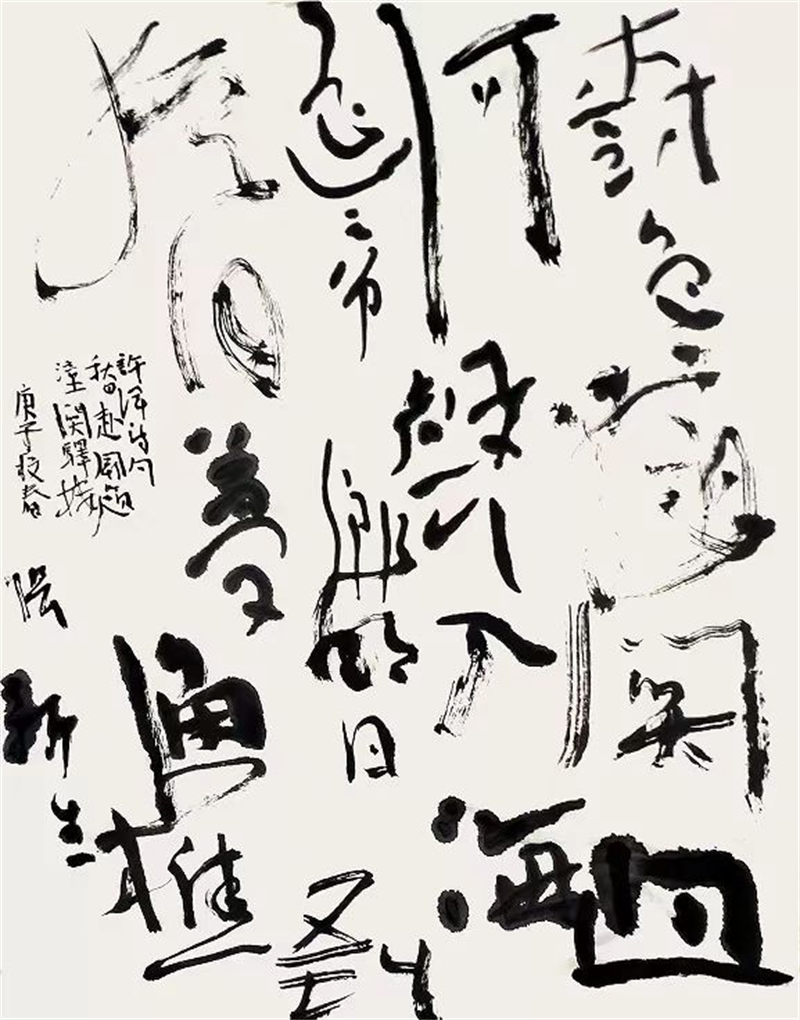 樹色隨關迥
河聲入海
遙帝鄉明日到
猶自夢漁樵
許渾詩句
秋日赴闕題
潼關驛樓
庚子春
新生